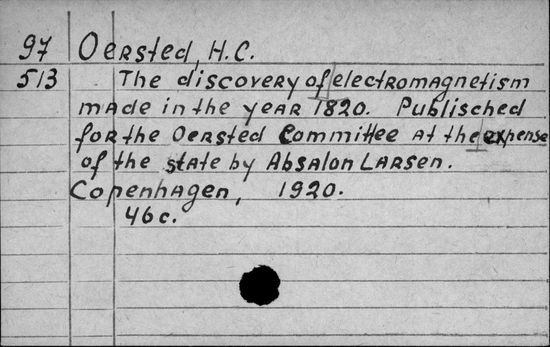 97 Oersted, H.C.
513 The discovery of electromagnetism
made in the year 1820. Publisched
for the Oersted Committee at the expense
of the state by Absalon Larsen.
Copenhagen, 1920.
46 c.